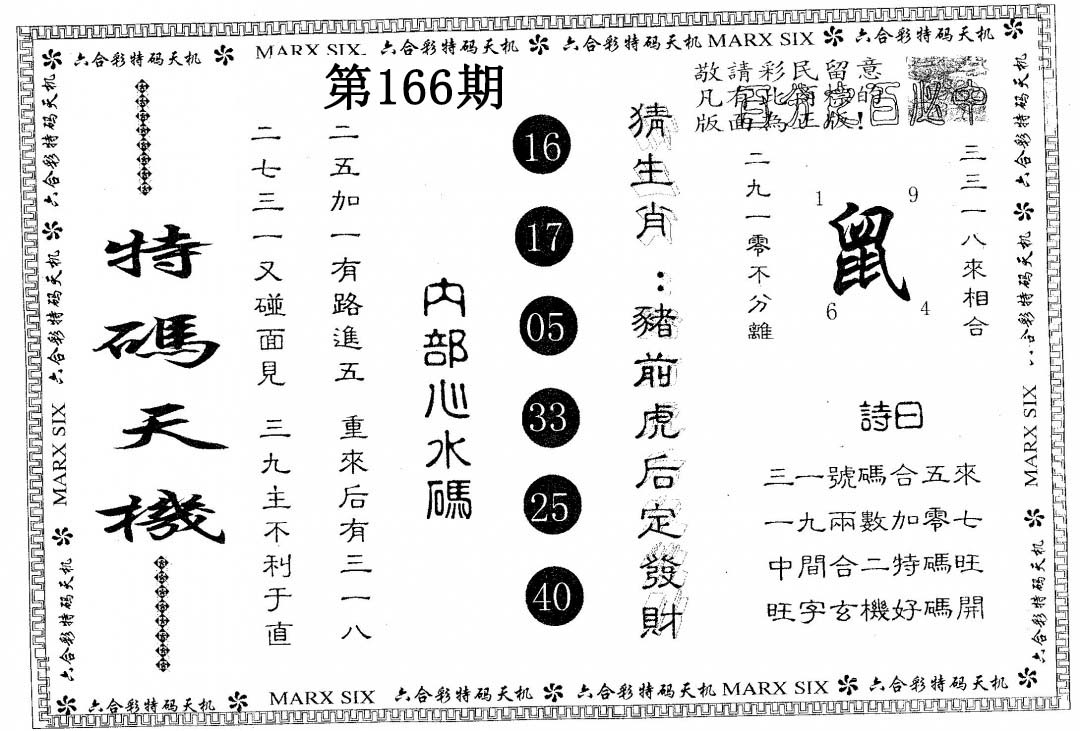 六合彩特码天机 MARX SIX 六合彩特码天机 六合彩特码天机 MARX SIX 六合彩特码天机
第166期
敬請彩民留意
凡有此
的
版面為正版!
特碼天機
二七三一又碰面見 三九主不利于直
二五加一有路進五 重來后有三一八
內部心水碼
16
17
05
33
25
40
猜生肖：豬前虎后定發財
二九一零不分離
1
9
鼠
6
4
三三一八來相合
詩曰
三一號碼合五來
一九兩數加零七
中間合二特碼旺
旺字玄機好碼開
六合彩特码天机 六合彩特码天机 MARX SIX 六合彩特码天机
六合彩特码天机 六合彩特码天机 MARX SIX 六合彩特码天机
六合彩特码天机 MARX SIX 六合彩特码天机 六合彩特码天机 MARX SIX 六合彩特码天机